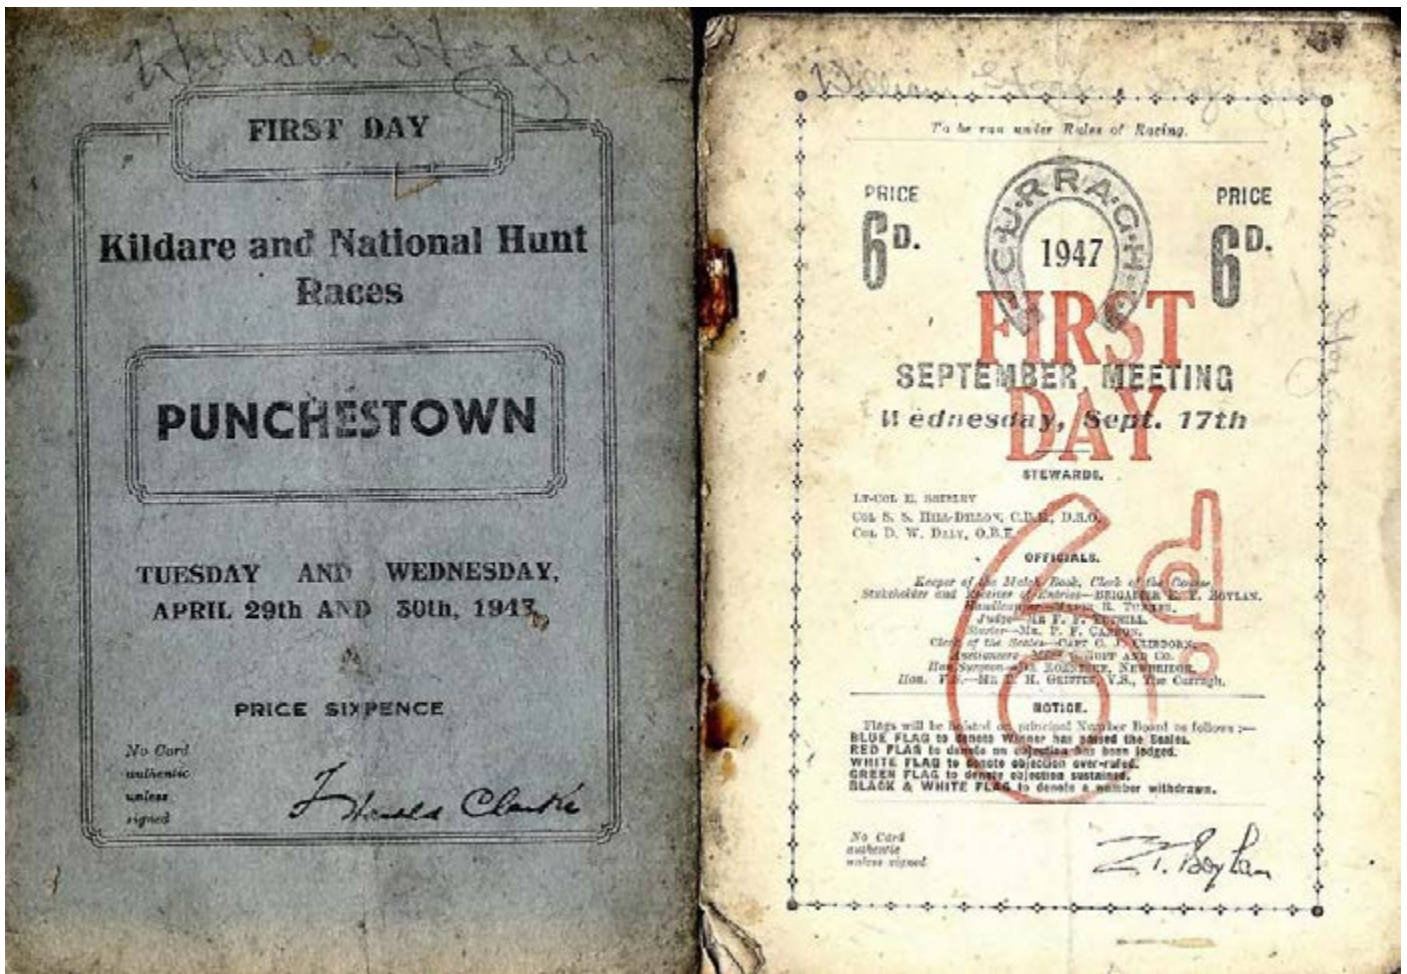 William Hogan
FIRST DAY
Kildare and National Hunt
Races
PUNCHESTOWN
TUESDAY AND WEDNESDAY,
APRIL 29th AND 30th, 1947
PRICE SIXPENCE
No Card
authentic
unless
signed
F Harold Clarke
William Hogan
To be run under Rules of Racing.
CURRAGH
1947
PRICE
6D.
PRICE
6D.
FIRST
DAY
SEPTEMBER MEETING
Wednesday, Sept. 17th
STEWARDS.
LT-COL E. SHIRLEY
COL S. S. HILL-DILLON, C.B.E., D.S.O.
COL D. W. DALY, O.B.E.
OFFICIALS.
Keeper of the Match Book, Clerk of the Course
Stakeholder and Receiver of Entries—BRIGADIER E. T. BOYLAN.
Handicapper—MAJOR R. TURNER.
Judge—MR F. F.
Starter—MR. P. F. CANNON.
Clerk of the Scales—CAPT C. J. CLIBBORN.
Auctioneers— GOFF AND CO.
Hon Surgeon— NEWBRIDGE.
Hon. V.S.—MR H. GRIFFIN, V.S., The Curragh.
NOTICE.
Flags will be hoisted on principal Number Board as follows :—
BLUE FLAG to denote Winner has passed the Scales.
RED FLAG to denote an objection has been lodged.
WHITE FLAG to denote objection over-ruled.
GREEN FLAG to denote objection sustained.
BLACK & WHITE FLAG to denote a number withdrawn.
6d.
No Card
authentic
unless signed
E. T. Boylan
William Hogan